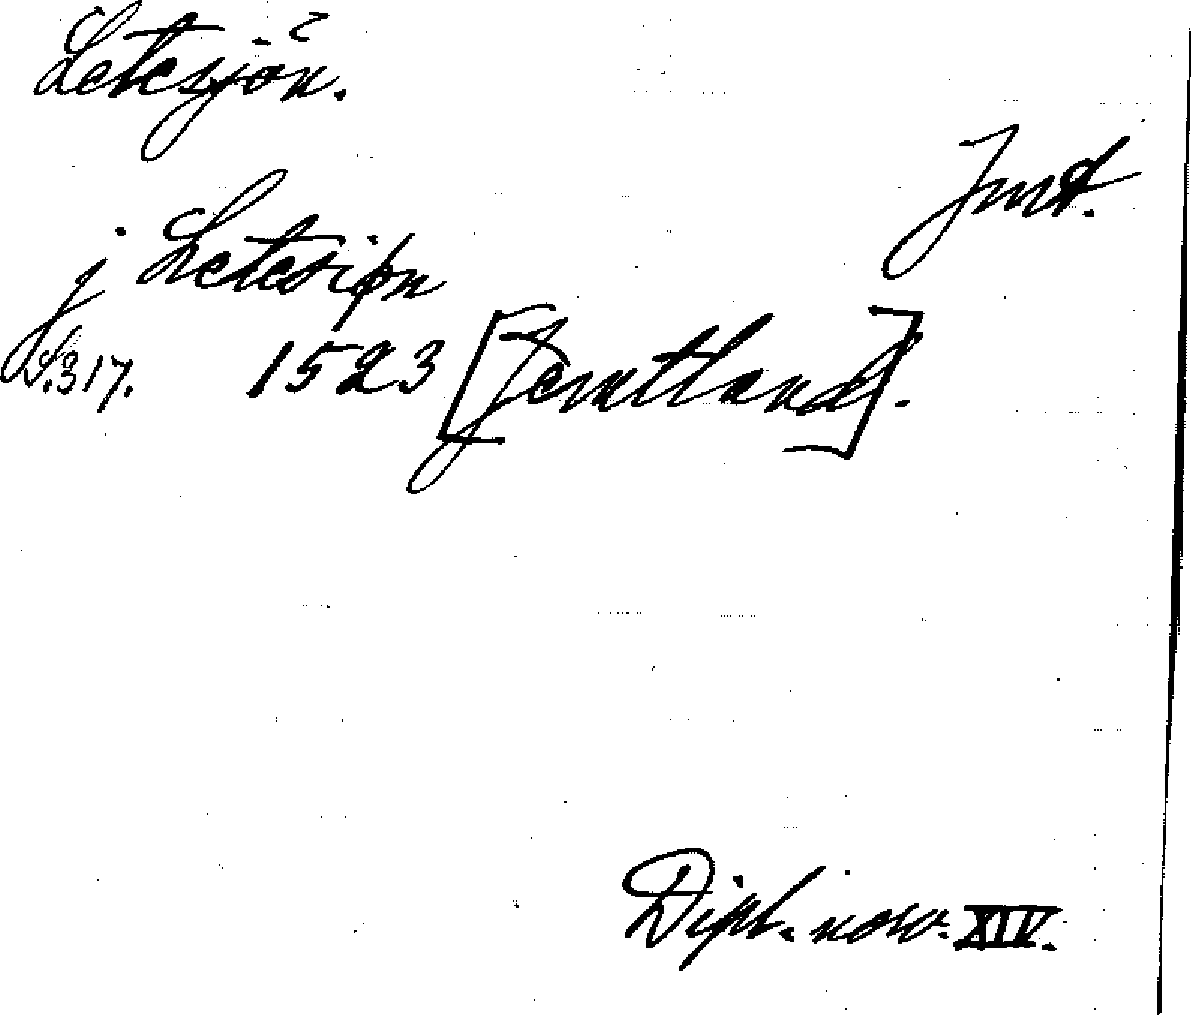 Letesjön.
Jmt.
j Letesiøn
S. 317. 1523 [Jemtland].
Dipl. norv. XIV.